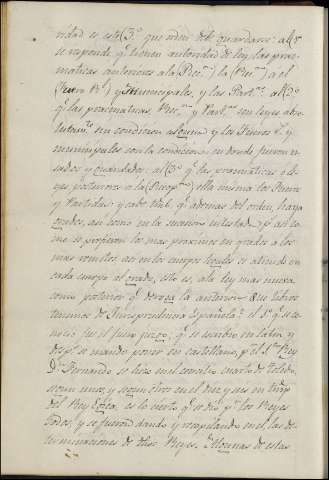 ridad es este (3º que orden debe guardarse: al (1º
se responde, qº tienen autoridad de ley, las prac-
maticas anteriores ala (Recon) la (Recon) a el
(Fuero Rl) y Municipales, y las Partas: al (2º
qº las pracmaticas, Recon y Partas son leyes abso-
lutamte sin condicion alguna y los Fueros Rs y
municipales con la condicion en donde fueren u-
sados y guardados: al (3º qº las pracmaticas o le-
yes posteriores a la (Recopon) ella misma los Fueros
y Partidas: y cabe tbn qº ademas del orden, haya
grados, asi como en la sucesion intestada, pº asi co-
mo se prefieren los mas proximos en grados a los
mas remotos asi en los cuerpos legales se atiende en
cada cuerpo el grado, esto es, ala ley mas nueva
como posterior qº deroga la anterior. Los libros
tenemos de Jurisprudencia Española: el 1º qº se co-
nocio fue el fuero juzgo, qº se escribio en latin y
despº se mando poner en castellano, pº el Sto Rey
Dn Fernando se hizo en el concilio cuarto de Toledo,
segun unos, y segun otros en el diez y seis en tiempº
del Rey Egica, es lo cierto qº se dio pº los Reyes
Godos, y se fueron dando y recopilando en el, las de-
terminaciones de otros Reyes. Algunas de estas